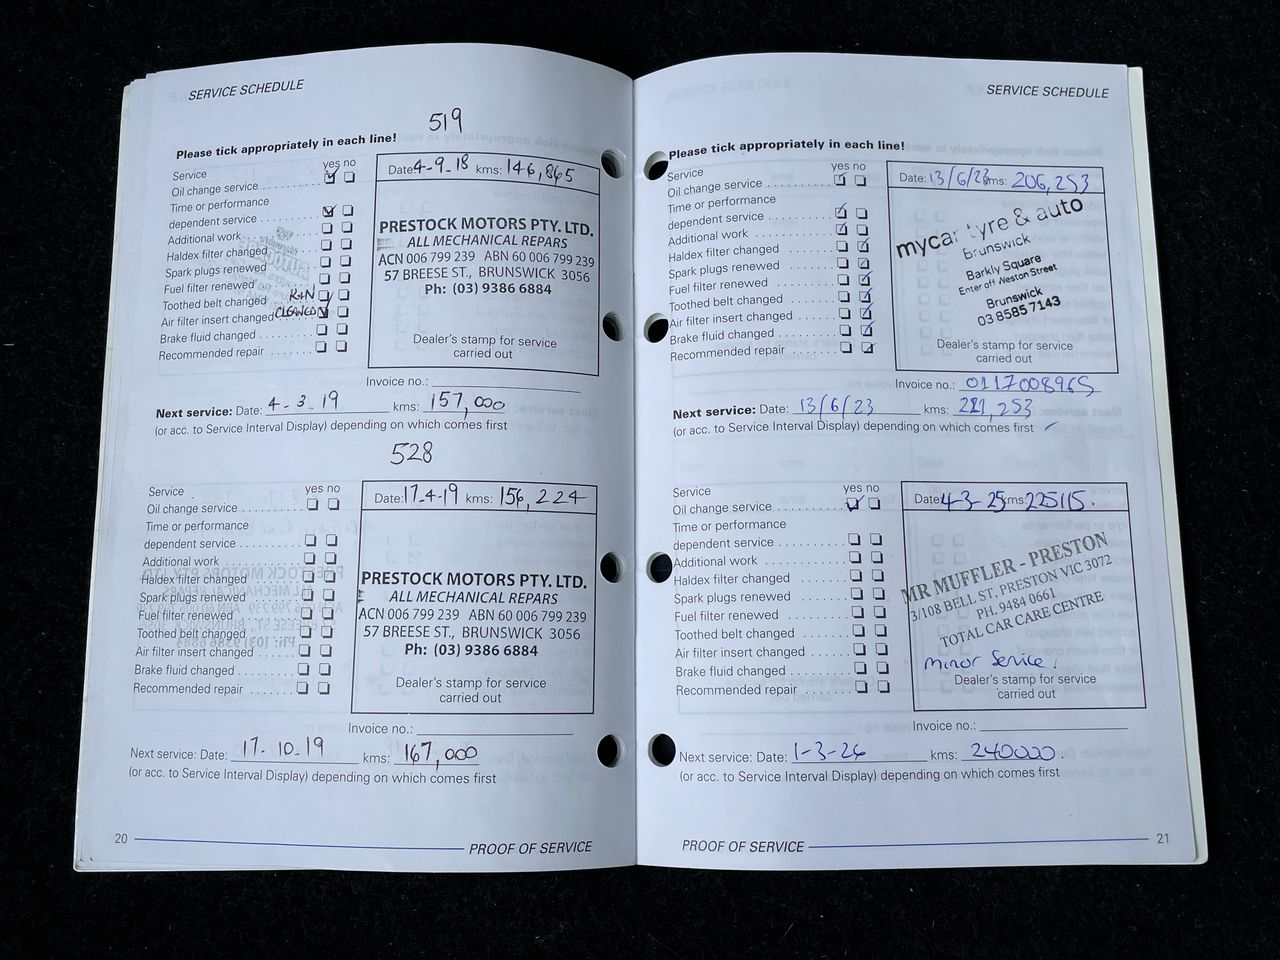 SERVICE SCHEDULE
519
Please tick appropriately in each line!
yes no
Service
Oil change service
Time or performance
dependent service
Additional work
Haldex filter changed
Spark plugs renewed
Fuel filter renewed
Toothed belt changed
Air filter insert changed CLEANED
Brake fluid changed
Recommended repair
Date: 4-9-18 kms: 146,865
PRESTOCK MOTORS PTY. LTD.
ALL MECHANICAL REPARS
ACN 006 799 239 ABN 60 006 799 239
57 BREESE ST., BRUNSWICK 3056
Ph: (03) 9386 6884
Dealer's stamp for service
carried out
Invoice no.:
Next service: Date: 4-3-19 kms: 157,000
(or acc. to Service Interval Display) depending on which comes first
528
Service
yes no
Oil change service
Time or performance
dependent service
Additional work
Haldex filter changed
Spark plugs renewed
Fuel filter renewed
Toothed belt changed
Air filter insert changed
Brake fluid changed
Recommended repair
Date: 17-4-19 kms: 156,224
PRESTOCK MOTORS PTY. LTD.
ALL MECHANICAL REPARS
ACN 006 799 239 ABN 60 006 799 239
57 BREESE ST., BRUNSWICK 3056
Ph: (03) 9386 6884
Dealer's stamp for service
carried out
Invoice no.:
Next service: Date: 17-10-19 kms: 167,000
(or acc. to Service Interval Display) depending on which comes first
20
PROOF OF SERVICE
SERVICE SCHEDULE
Please tick appropriately in each line!
yes no
Service
Oil change service
Time or performance
dependent service
Additional work
Haldex filter changed
Spark plugs renewed
Fuel filter renewed
Toothed belt changed
Air filter insert changed
Brake fluid changed
Recommended repair
Date: 13/6/23 kms: 206,253
mycar tyre & auto
Brunswick
Barkly Square
Enter off Weston Street
Brunswick
03 8585 7143
Dealer's stamp for service
carried out
Invoice no.: 0117008965
Next service: Date: 13/6/23 kms: 221,253
(or acc. to Service Interval Display) depending on which comes first
Service
yes no
Oil change service
Time or performance
dependent service
Additional work
Haldex filter changed
Spark plugs renewed
Fuel filter renewed
Toothed belt changed
Air filter insert changed
Brake fluid changed
Recommended repair
Date: 4-3-25 kms: 225115.
MR MUFFLER - PRESTON
3/108 BELL ST, PRESTON VIC 3072
PH. 9484 0661
TOTAL CAR CARE CENTRE
minor Service.
Dealer's stamp for service
carried out
Invoice no.:
Next service: Date: 1-3-26 kms: 240000.
(or acc. to Service Interval Display) depending on which comes first
PROOF OF SERVICE
21